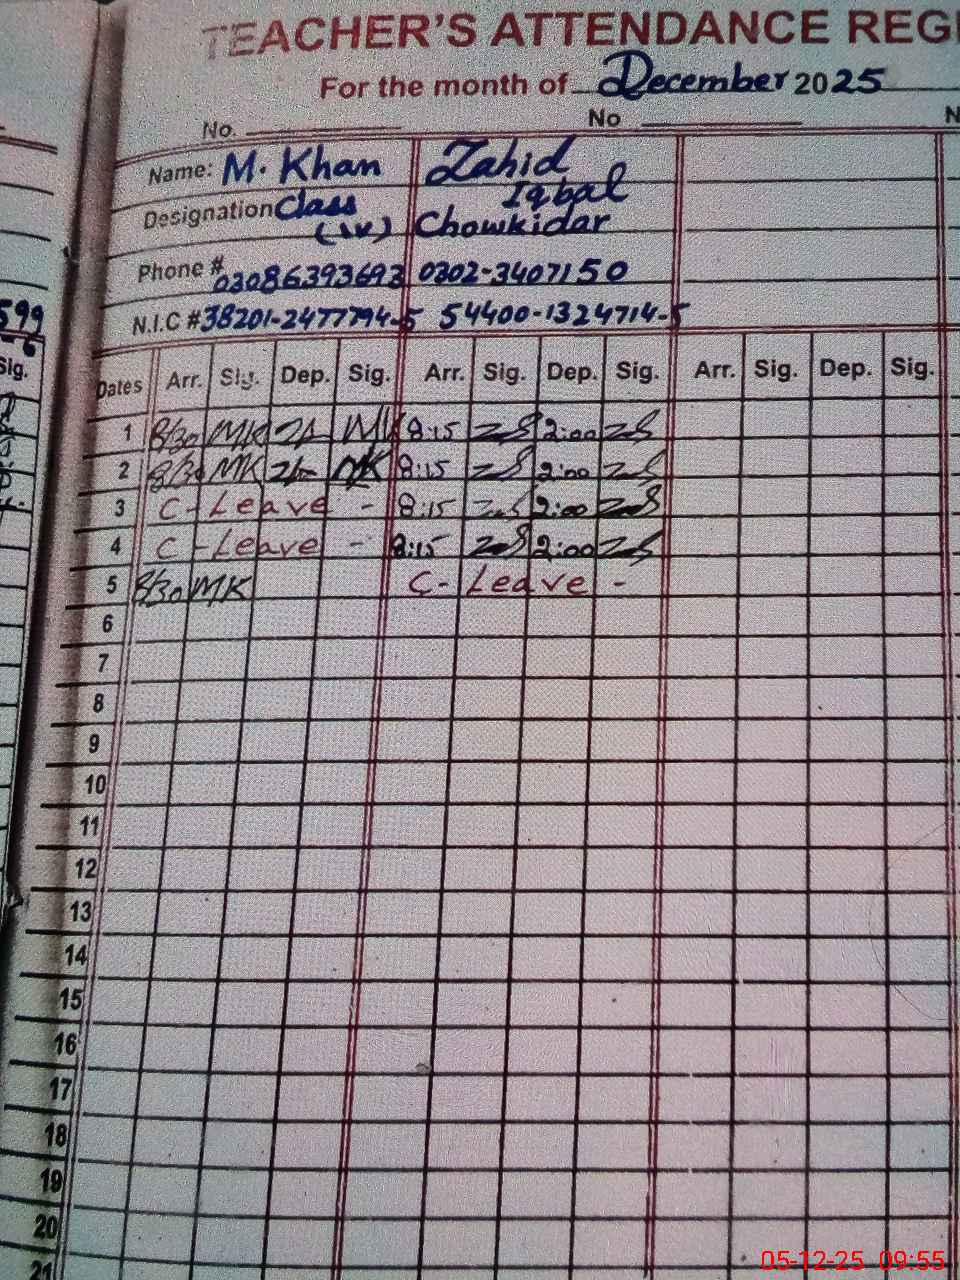 TEACHER'S ATTENDANCE REGI
For the month of December 2025
No. No N
Name: M. Khan Zahid
Iqbal
Designation Class
(IV) Chowkidar
Phone # 03086393693 0302-3407150
N.I.C # 38201-2477794-5 54400-1324714-5
599
Sig.
Dates Arr. Sig. Dep. Sig. Arr. Sig. Dep. Sig. Arr. Sig. Dep. Sig.
1 8/30 MK MK 8:15 2:00
2 8/30 MK MK 8:15 2:00
3 C-Leave - 8:15 2:00
4 C-Leave - 8:15 2:00
5 8/30 MK C-Leave -
6
7
8
9
10
11
12
13
14
15
16
17
18
19
20
21
05-12-25 09:55